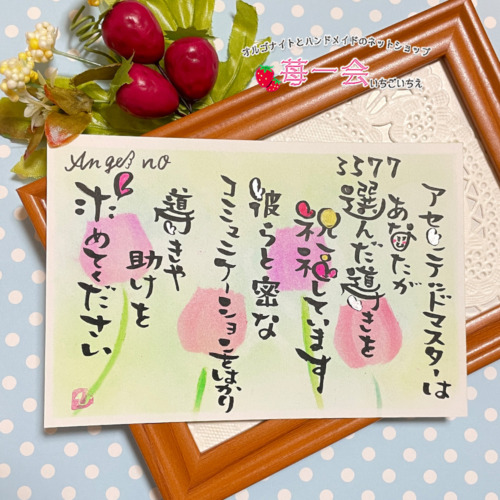 オルゴナイトとハンドメイドのネットショップ
苺一会 いちごいちえ
Angel no
3577
アセンテッドマスターは
あなたが
選んだ導きを
祝福しています
彼らと密な
コミュニケーションをはかり
導きや
助けを
求めてください